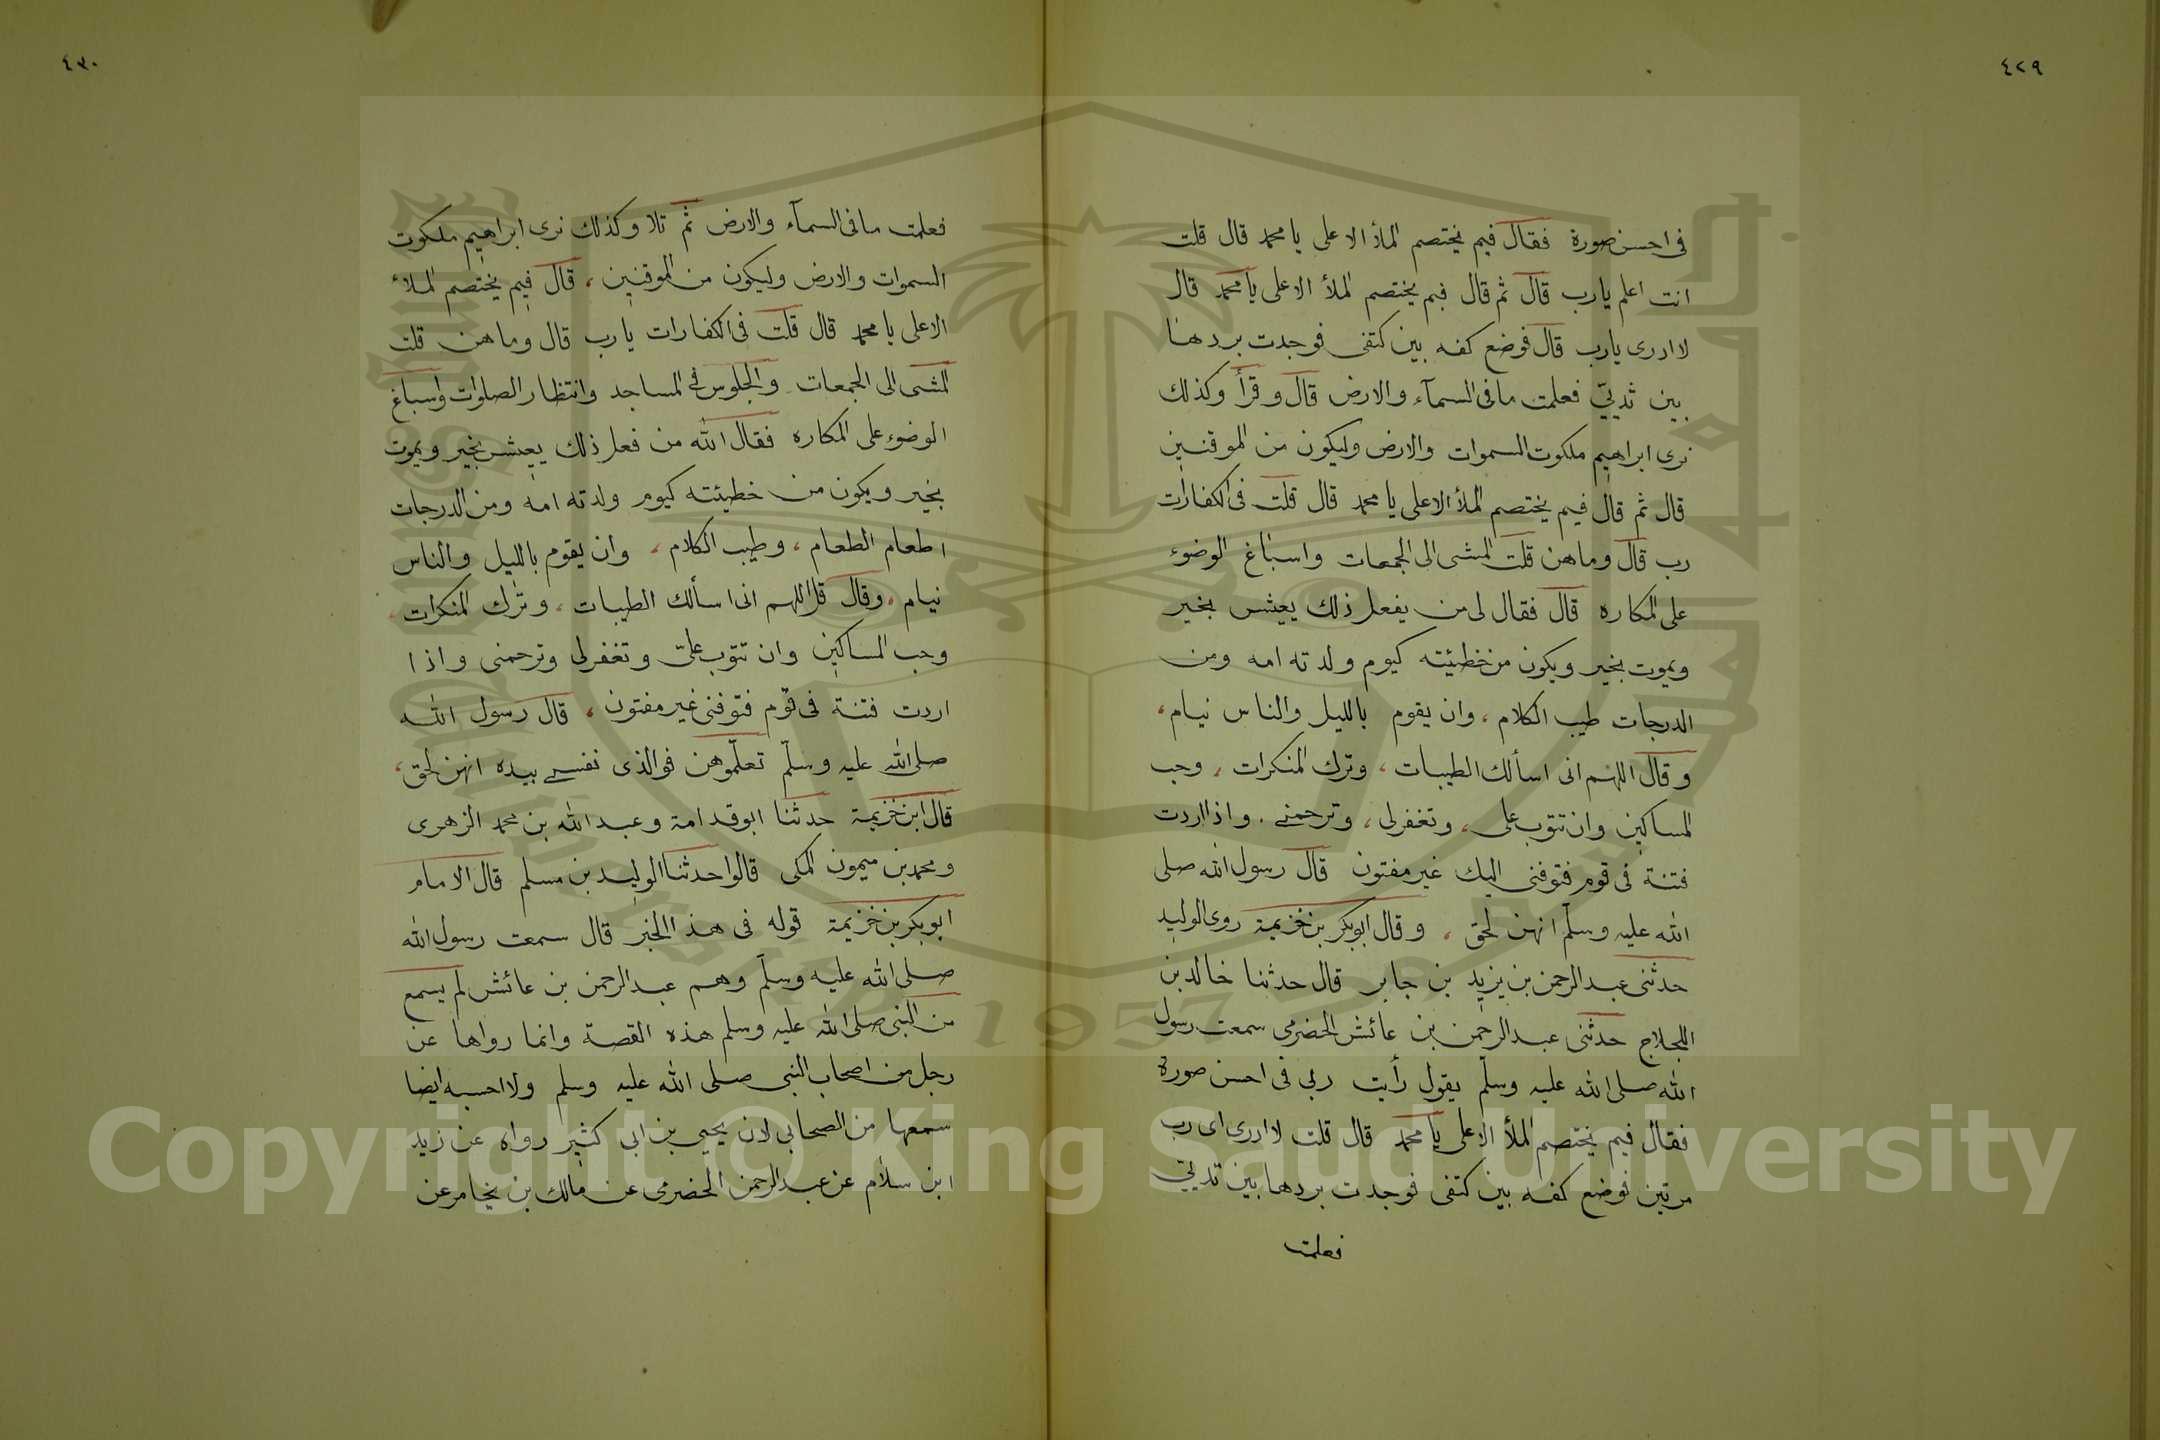 ٤٢٩
في احسن صورة فقال فيم يختصم الملأ الاعلى يا محمد قال قلت
انت اعلم يا رب قال ثم قال فيم يختصم الملأ الاعلى يا محمد قال
لا ادرى يا رب قال فوضع كفه بين كتفى فوجدت بردها
بين ثديىّ فعلمت ما فى السمآء والارض قال وقرأ وكذلك
نرى ابراهيم ملكوت السموات والارض وليكون من الموقنين
قال ثم قال فيم يختصم الملأ الاعلى يا محمد قال قلت فى الكفارات
رب قال وما هن قلت المشى الى الجمعات واسباغ الوضوء
على المكاره قال فقال لى من يفعل ذلك يعيش بخير
ويموت بخير ويكون من خطيئته كيوم ولدته امه ومن
الدرجات طيب الكلام ، وان يقوم بالليل والناس نيام ،
وقال اللهم انى اسألك الطيبات ، وترك المنكرات ، وحب
المساكين وان تتوب على ، وتغفر لى ، وترحمنى . واذا اردت
فتنة فى قوم فتوفنى اليك غير مفتون قال رسول الله صلى
الله عليه وسلّم انهن لحق ، وقال ابو بكر بن خزيمة روى الوليد
حدثنى عبد الرحمن بن يزيد بن جابر قال حدثنا خالد بن
اللجلاج حدثنى عبد الرحمن بن عائش الحضرمى سمعت رسول
الله صلى الله عليه وسلّم يقول رأيت ربى فى احسن صورة
فقال فيم يختصم الملأ الاعلى يا محمد قال قلت لا ادرى اى رب
مرتين فوضع كفه بين كتفى فوجدت بردها بين ثدييّ
فعلمت
٤٣٠
فعلمت ما فى السمآء والارض ثم تلا وكذلك نرى ابراهيم ملكوت
السموات والارض وليكون من الموقنين ، قال فيم يختصم الملاء
الاعلى يا محمد قال قلت فى الكفارات يا رب قال وما هن قلت
المشى الى الجمعات والجلوس فى المساجد وانتظار الصلوات واسباغ
الوضوء على المكاره فقال الله من فعل ذلك يعيش بخير ويموت
بخير ويكون من خطيئته كيوم ولدته امه ومن الدرجات
اطعام الطعام ، وطيب الكلام ، وان يقوم بالليل والناس
نيام ، وقال قل اللهم انى اسألك الطيبات ، وترك المنكرات ،
وحب المساكين وان تتوب علىّ وتغفر لى وترحمنى واذا
اردت فتنة فى قوم فتوفنى غير مفتون ، قال رسول الله
صلى الله عليه وسلّم تعلّموهن فوالذى نفسى بيده انهن لحق ،
قال ابن خزيمة حدثنا ابو قدامة وعبد الله بن محمد الزهرى
ومحمد بن ميمون المكى قالوا حدثنا الوليد بن مسلم قال الامام
ابو بكر بن خزيمة قوله فى هذا الخبر قال سمعت رسول الله
صلى الله عليه وسلّم وهم عبد الرحمن بن عائش لم يسمع
من النبى صلى الله عليه وسلم هذه القصة وانما رواها عن
رجل من اصحاب النبى صلى الله عليه وسلم ولا احسبه ايضا
سمعها من الصحابى لان يحيى بن ابى كثير رواه عن زيد
ابن سلام عن عبد الرحمن الحضرمى عن مالك بن يخامر عن
1957
Copyright © King Saud University